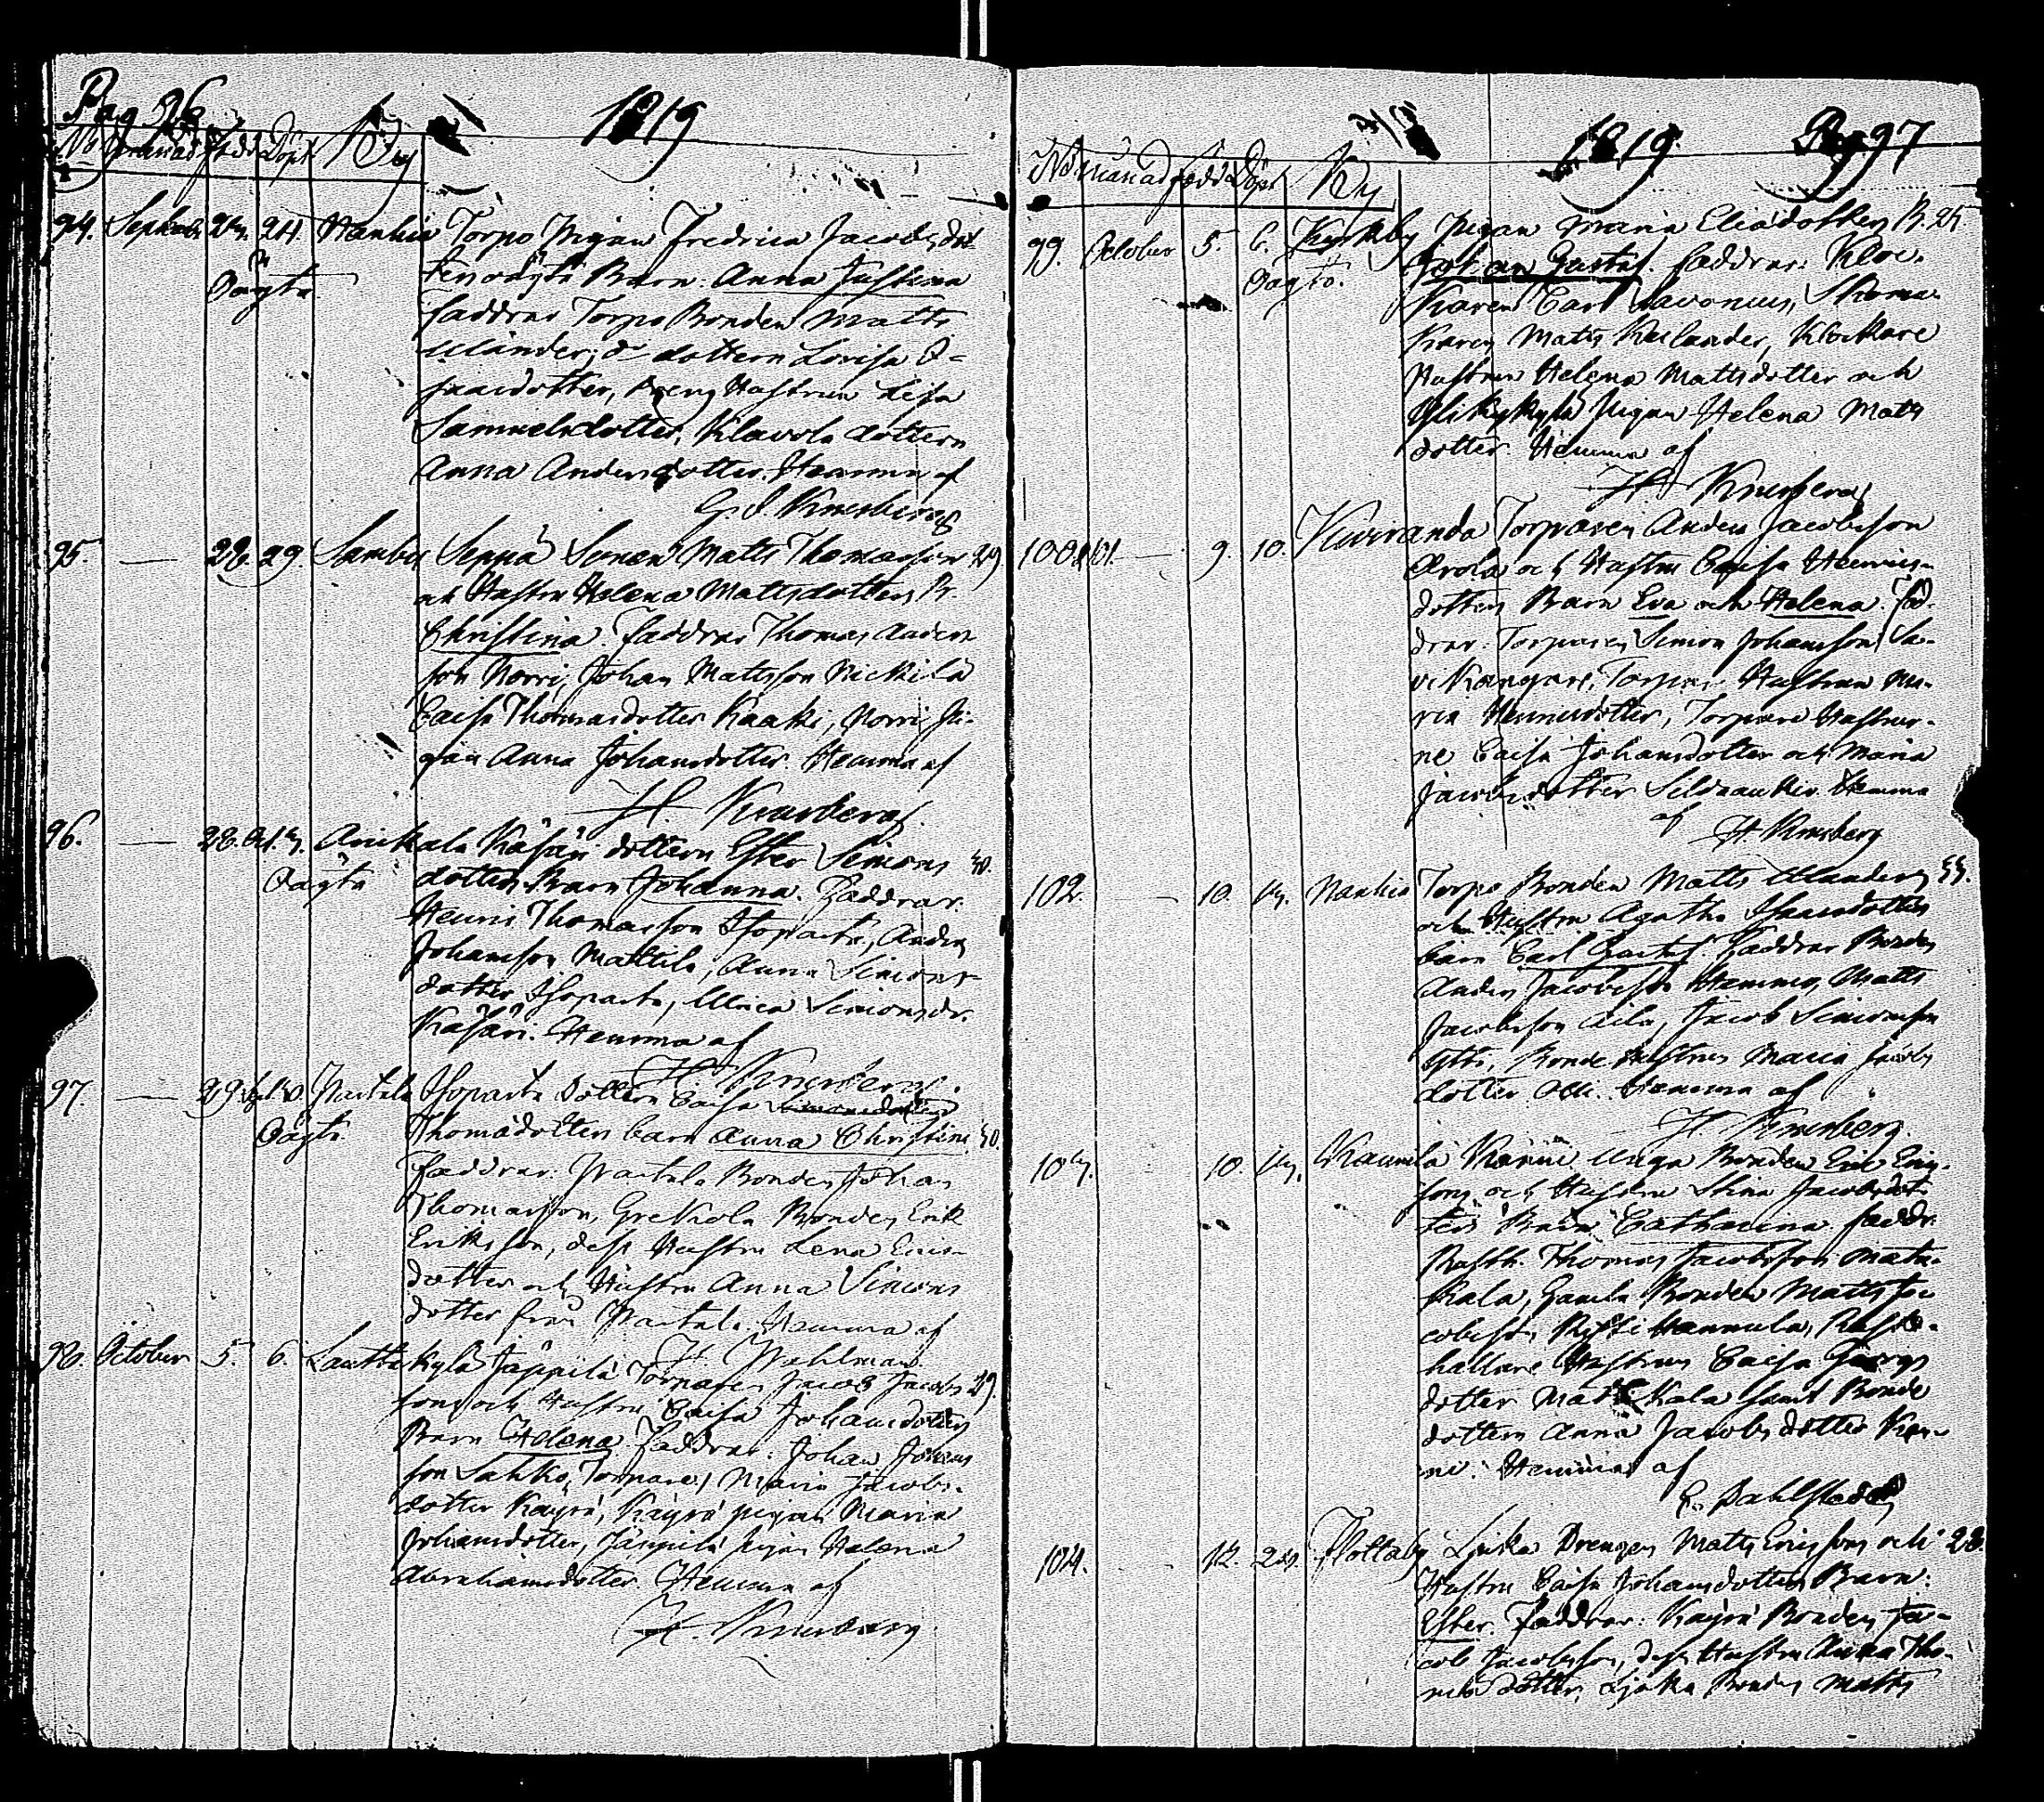 Pag 96
1819
No Månad Född Döpt By
94. Septemb. 23. 24. Nankia Torpo Pigan Fredrica Jacobsdot-
Oägta
ters oägta Barn Anna Justina
Faddrar Torpo Bonden Matts
dottern Lovisa I-
saacsdotter, Hustrun Lisa
Samuelsdotter, Klavola dottern
Anna Andersdotter. Hemma af
G. J. Kruusberg
95. — 28. 29. Sambu Seppä Sonen Matts Thomasson 29
och Hustru Helena Mattsdotters B.
Christina. Faddrar Thomas Anders
son Norri, Johan Mattsson Nickilä
Caisa Thomasdotter Kaaki, Norri Pi-
gan Anna Johansdotter. Hemma af
H. Kruusberg
96. — 28. Oct. 3. Arikala Käsäri dottern Ester Simons 30.
Oägta
dotters Barn Johanna. Faddrar.
Henric Thomasson Isopartu, Anders
Johansson Mattila, Anna Simons-
dotter Isopartu, Ulrica Simonsdr.
Käsäri. Hemma af
H. Kruusberg
97. — 29. Sept. 30. Partala Isopartu Dottern Caisa
Oägta
Thomasdotters barn Anna Christina 30.
Faddrar: Partala Bonden Johan
Thomasson, Grekola Bonden Erik
Eriksson, dess Hustru Lena Erics-
dotter och Hustru Anna Simons
dotter från Partala. Hemma af
H. Wahlman
98. October 5. 6. Lauttakylä Jäppilä Torparen Jacob Jacobs 29.
sons och Hustru Caisa Johansdotters
Barn Helena. Faddrar: Johan Johans
son Sahko, Torpare, Maria Jacobs-
dotter Käyrä, Käyrä pigan Maria
Johansdotter, Jäppilä pigan Helena
Abrahamsdotter. Hemma af
H. Kruusberg
1819. Pag 97
No Månad Född Döpt By
99. October 5. 6. Kyrkby Pigan Maria Eliædotters B. 25.
Oägta.
Johan Gustaf. Faddrar: Kloc-
karen Carl Savonius, Skoma-
karen Matts Kulander, Klockare
Hustrun Helena Mattsdotter och
Pigan Helena Matts
dotter. Hemma af
H. Kruusberg
100 & 101. — 9. 10. Kivvranda Torparen Anders Jacobsson
Arola och Hustru Caisa Henrics-
dotters Barn Eva och Helena. Fad-
drar: Torparen Simon Johansson Sa-
vikangare, Torpare Hustrun Ma-
ria Henricsdotter, Torpare Hustrur-
ne Caisa Johansdotter och Maria
Jacobsdotter Hemma
af
H. Kruusberg
102. — 10. 13. Nankia Torpo Bonden Matts 33.
och Hustru Agatha Isaacsdotters
barn Carl Gustaf. Faddrar Bonden
Anders Jacobsson Hemmig, Matts
Jacobsson Aila, Jacob Simonsson
Bonde Hustrun Maria Jacobs
dotter Olli. Hemma af
H. Kruusberg
103. 10. 13. Kaurula Unga Bonden Eric Eric-
sons och Hustru Stina Jacobsdot-
ters Barn Catharina. Faddr:
Rusth. Thomas Jacobsson Mata-
kala, Gamla Bonden Matts Ja-
cobsson Risti Hannula, Rust-
hållare Hustrun Caisa Georgs
dotter Matakala samt Bonde
dottern Anna Jacobsdotter
Hemma af
E. Dahlstedt
104. 12. 23. Flottaby Ljuka Drengen Matts Ericssons och 28.
Hustru Caisa Johansdotters Barn:
Ester. Faddrar: Käyrä Bonden Ja-
cob Jacobsson, dess Hustru Anna Tho-
masdotter, Ljuka Bonden Matts